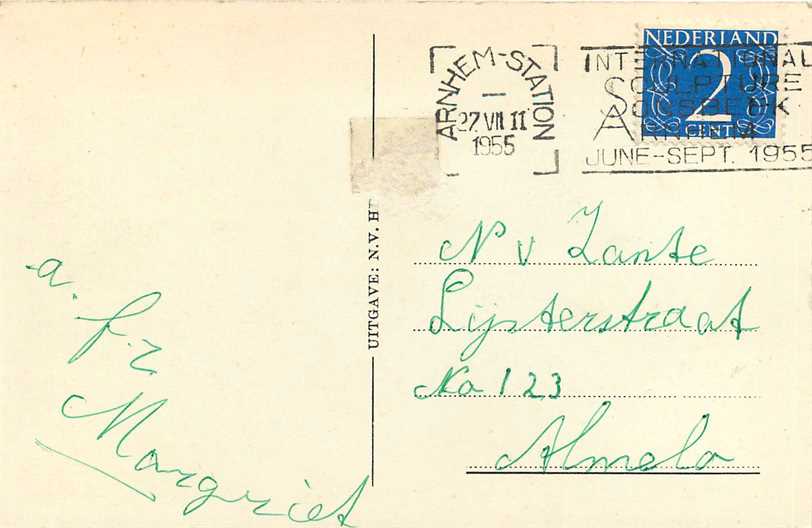 NEDERLAND
2
CENT
ARNHEM-STATION
27 VII 11
1955
INTERNATIONAL
SCULPTURE
SONSBEEK
ARNHEM
JUNE-SEPT. 1955
UITGAVE: N.V. H
a.
f. r.
Margriet
N v Zante
Lijsterstraat
No 123
Almelo